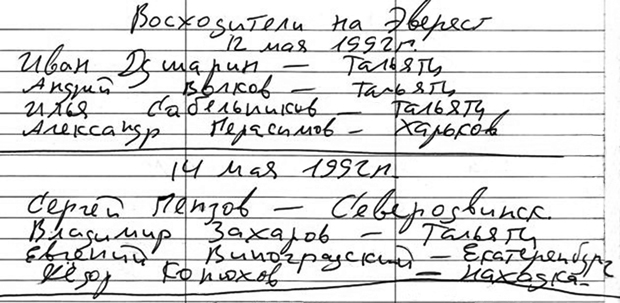 Восходители на Эверест
12 мая 1992г.
Иван Душарин – Тальяти
Андрий Волков – Тальяти
Илья Сабельников – Тальяти
Александр Герасимов – Харьков
14 мая 1992г.
Сергей Пензов – Северодвинск
Владимир Захаров – Тальяти
Евгений Виноградский – Екатеренбург
Фёдор Конюхов – Находка